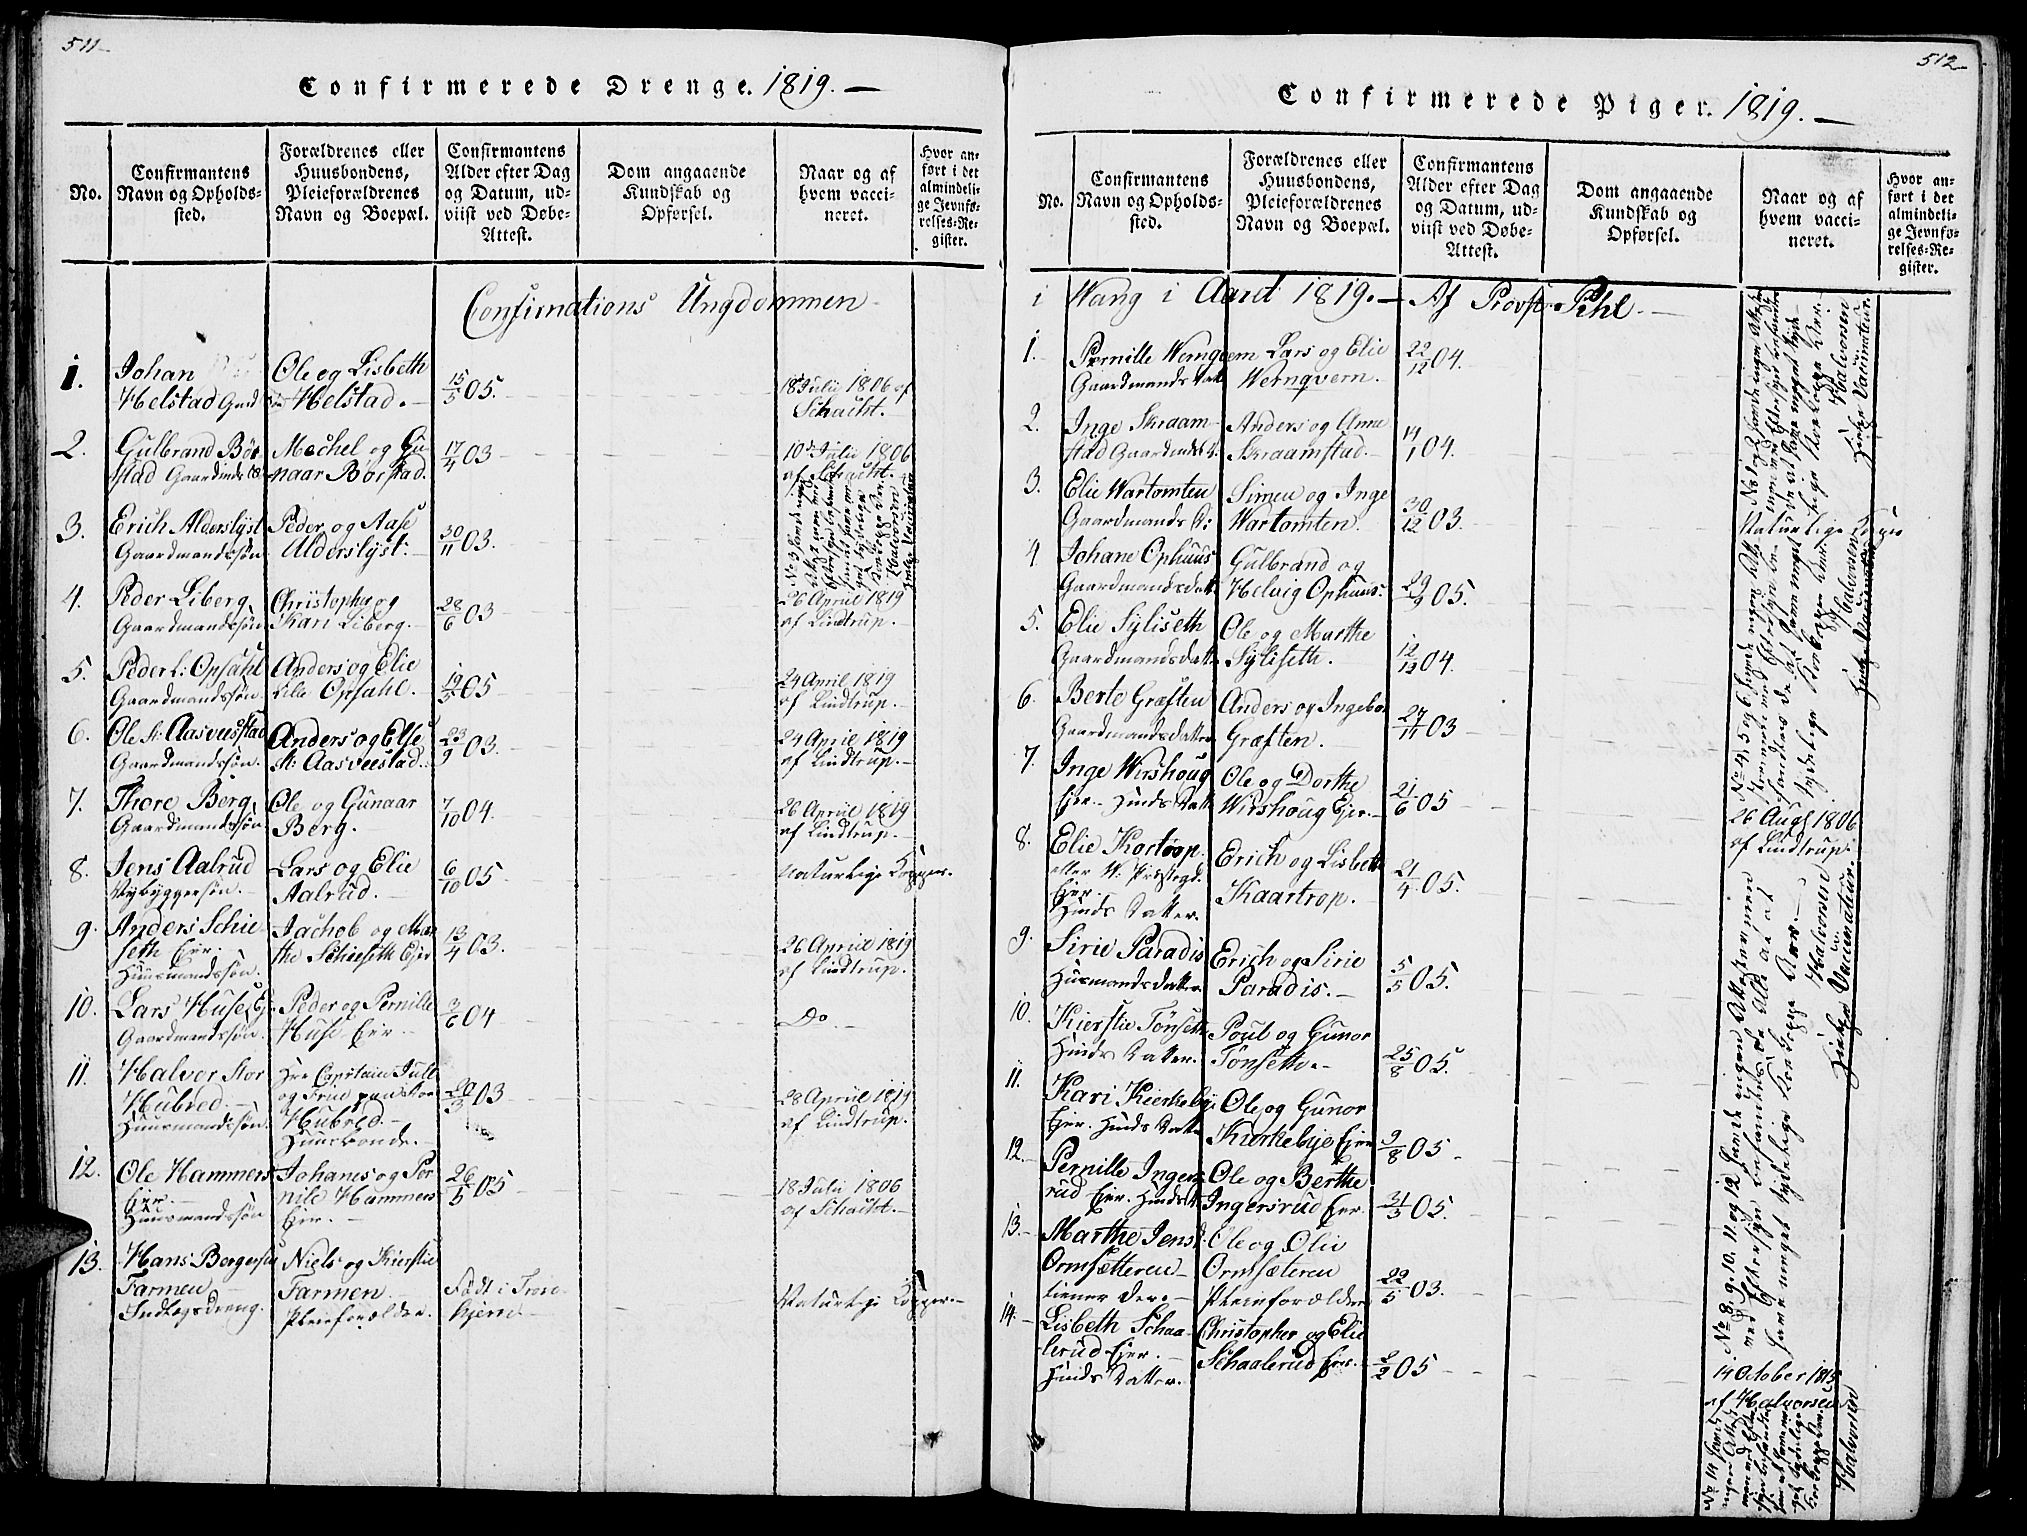 511
Confirmerede Drenge. 1819.
No.
Confirmantens
Navn og Opholds-
sted.
Forældrenes eller
Huusbondens,
Pleieforældrenes
Navn og Boepæl.
Confirmantens
Alder efter Dag
og Datum, ud-
viist ved Døbe-
Attest.
Dom angaaende
Kundskab og
Opførsel.
Naar og af
hvem vacci-
neret.
Hvor an-
ført i det
almindeli-
ge Jevnfø-
relses-Re-
gister.
Confirmations Ungdommen
1.
Johan
Helstad
Ole og Lisbeth
Helstad.
15/5 05.
18 Julii 1806 af
Schacht.
2.
Gulbrand Bør-
stad
Mechel og Gu-
naar Børstad.
17/4 03
10 Julii 1806
af Schacht.
3.
Erich Alderslyst
Gaardmandssøn
Peder og Aase
Alderslyst.
30/11 03.
4.
Peder Liberg
Gaardmandssøn
Christopher og
Kari Liberg.
28/6 03
26 April 1819
af Lindtrup.
5.
Peder L: Opsahl
Gaardmandssøn
Anders og Elie
Lille Opsahl.
19/5 05
24 April 1819
af Lindtrup.
6.
Ole St: Aasveestad
Gaardmandssøn.
Anders og Else
St: Aasveestad.
23/9 03.
24 April 1819
af Lindtrup.
7.
Thore Berg
Gaardmandssøn
Ole og Gunaar
Berg.
7/10 04.
26 April 1819
af Lindtrup.
8.
Jens Aalrud
Nybyggersøn.
Lars og Elie
Aalrud.
6/10 05
naturlige Kopper.
9.
Anders Schie-
seth Eier.
Huusmandssøn.
Jachob og Mar-
the Schieseth Eier
13/4 03.
26 April 1819
af Lindtrup.
10.
Lars Huse Ej.
Gaardmandssøn.
Peder og Pernille
Huse Eier
3/6 04
Do
11.
Halvor Stor
Hubred.
Huusmandssøn.
Hubred.
Huusbonde.
20/3 03
28 April 1819
af Lindtrup.
12.
Ole Hammers
Eier.
Huusmandssøn
Johanes og Per-
nile Hammers
Eier.
26/5 05
18 Julii 1806
af Schacht.
13.
Hans Bergersen
Farmen
Indlegsdreng.
Niels og Kierstie
Farmen.
Pleieforælder.
Født i Tron-
hjem
Naturlige Kopper.
512
Confirmerede Piger. 1819.
No.
Confirmantens
Navn og Opholds-
sted.
Forældrenes eller
Huusbondens,
Pleieforældrenes
Navn og Boepæl.
Confirmantens
Alder efter Dag
og Datum, ud-
viist ved Døbe-
Attest.
Dom angaaende
Kundskab og
Opførsel.
Naar og af
hvem vacci-
neret.
Hvor an-
ført i det
almindeli-
ge Jevnfø-
relses-Re-
gister.
i Wang i Aaret 1819. Af Provst Pihl.
1.
Pernille Wernqvern
Gaardmands Datt
Lars og Elie
Wernqvern.
22/12 04.
2.
Inge Skraam-
stad
Anders og Anne
Skraamstad.
14/1 04.
3.
Elie Wartomten
Gaardmands D:
Simen og Inge
Wartomten.
30/12 03.
Naturlige Kopper
4
Johane Ophuus
Gaardmandsdatt
Gulbrand og
Helvig Ophuus.
29/9 05.
5.
Elie Syliseth
Gaardmandsdatt
Ole og Marthe
Syliseth.
12/12 04.
6.
Berte Græften
Gaardmandsdatter
Anders og Ingebor
Græften.
27/11 03
7.
Inge Wirshoug
Eier. Huusds Datt
Ole og Dorthe
Wirshoug Eier.
21/6 05
26 Aug 1806
af Lindtrup.
8.
Elie Kortrop.
eller W. Præstegd.
Eier.
Huusds Datter.
Erich og Lisbeth
Kaartrop.
21/4 05.
9.
Sirie Paradis
Huusmandsdatter
Erich og Sirie
Paradis.
5/5 05.
10.
Kierstie Tønseth
Huusds Datter.
Poul og Gunor
Tønseth.
25/8 05.
11.
Kari Kierkebye
Eier. Huusds Datt
Ole og Gunor
Kierkebye Eier
9/8 05
12.
Pernille Ingers-
rud Eier.
Ole og Berthe
Ingersrud Eier.
31/3 05.
13.
Marthe Jensd.
Ormsætteren
tiener der.
Ole og Olie
Ormsæteren
Pleieforælder
22/5 03.
14.
Lisbeth Schaa-
lerud Eier.
Huusds Datter.
Christopher og Elie
Schaalerud Eier.
2/2 05
14 October 1815
af Halvorsen